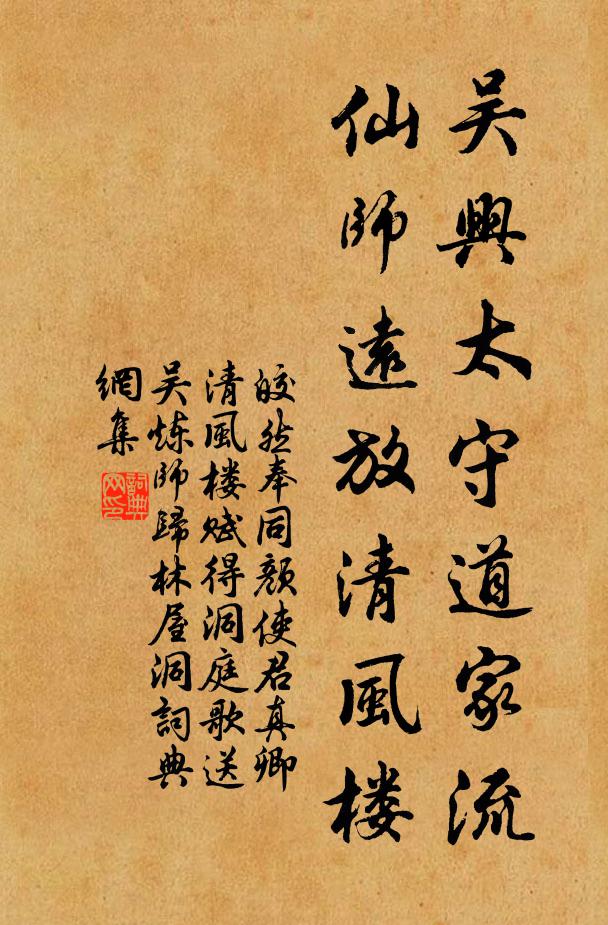 吴興太守道家流
仙師遠放清風楼
皎然奉同顏使君真卿
清風楼赋得洞庭歌送
吴炼師歸林屋洞詞典
網集
詞典
网印